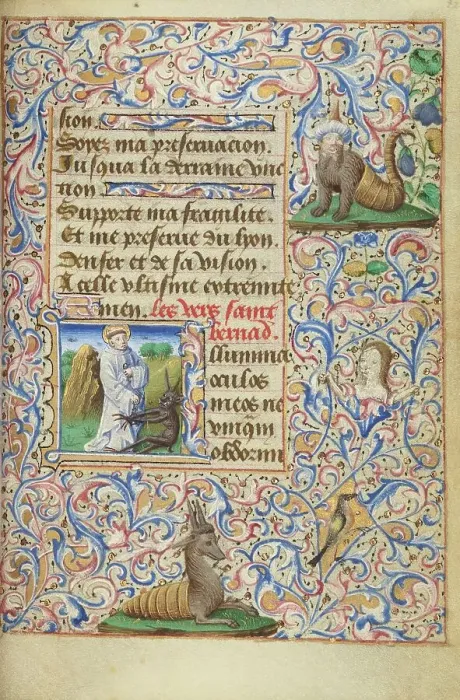 sion.
Soyez ma preseruacion.
Jusqua la derraine vnc
tion.
Supporte ma fragilite.
Et me preserue du lyon.
Denfer et de sa vision.
A celle vltisme extremite
Amen. les vers saint
bernad.
Illumina
oculos
meos ne
vnqm
obdormi